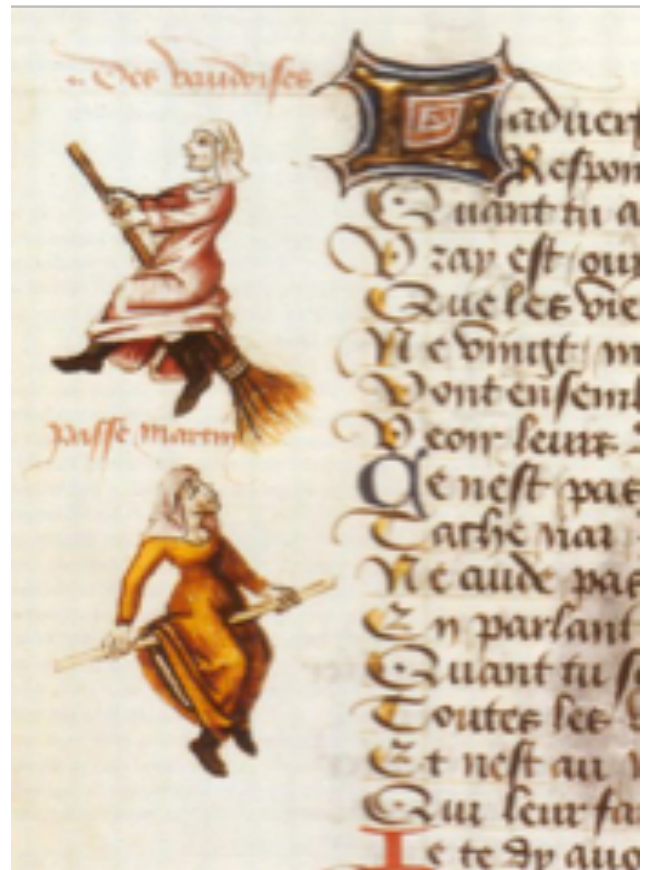 Des vaudoises
passe martin
Ladver
Respon
Quant tu a
Vray est our
Que les vie
Ne vingt m
Vont ensem
Veoir leurs
Ce nest pas
Ne aude pas
En parlant
Quant tu se
Toutes les
Et nest au
Qui leur fa
Je te dy auo